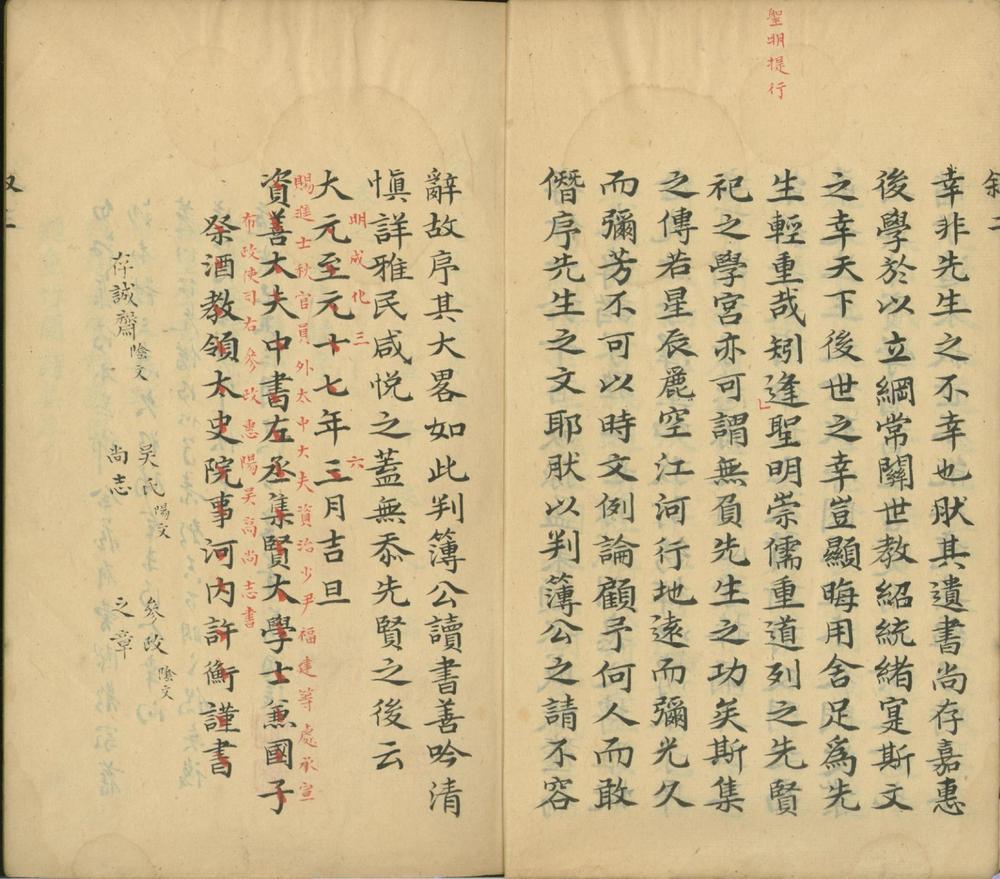 聖明提行
幸非先生之不幸也肰其遺書尚存嘉惠
後學於以立綱常關世教紹統緒寔斯文
之幸天下後世之幸豈顯晦用舍足為先
生輕重哉矧逢聖明崇儒重道列之先賢
祀之學宮亦可謂無負先生之功矣斯集
之傳若星辰麗空江河行地遠而彌光久
而彌芳不可以時文例論顧予何人而敢
僭序先生之文耶肰以判簿公之請不容
辭故序其大畧如此判簿公讀書善吟清
愼詳雅民咸悅之蓋無忝先賢之後云
明成化三 六
大元至元十七年三月吉旦
賜進士秋官員外太中大夫資治少尹福建等處承宣
資善大夫中書左丞集賢大學士兼國子
布政使司右參政惠陽吳高尚志書
祭酒教領太史院事河内許衡謹書
吳氏陽文
參政陰文
存誠齋陰文
尚志
之章